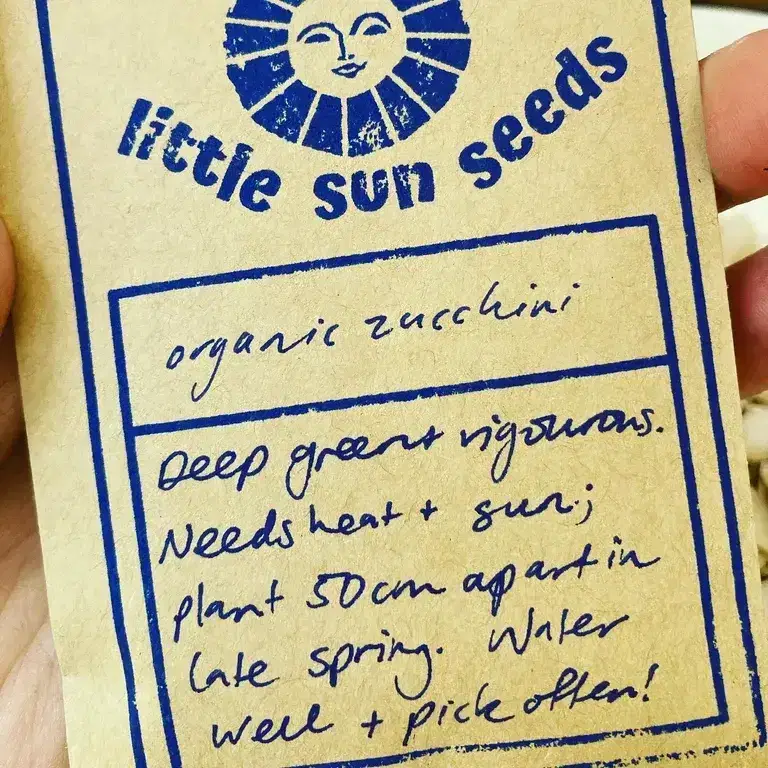 little sun seeds
organic zucchini
Deep green + vigourous.
Needs heat + sun;
plant 50cm apart in
late spring. Water
well + pick often!